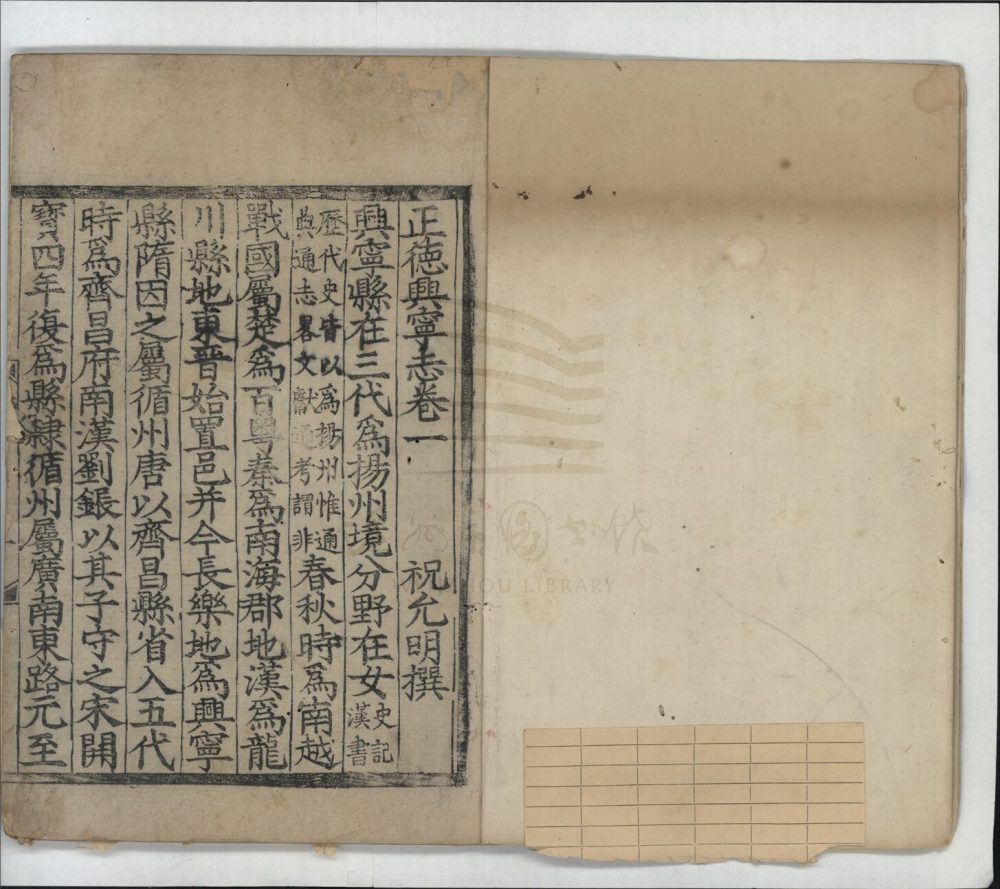 正徳興寧志卷一 祝允明撰
興寧縣在三代爲揚州境分野在女史記漢書
歷代史皆以爲揚州惟通典通志畧文獻通考謂非春秋時爲南越
戰國屬楚爲百粤秦爲南海郡地漢爲龍
川縣地東晉始置邑并今長樂地爲興寧
縣隋因之屬循州唐以齊昌縣省入五代
時爲齊昌府南漢劉鋹以其子守之宋開
寳四年復爲縣隷循州屬廣南東路元至
LIBRARY